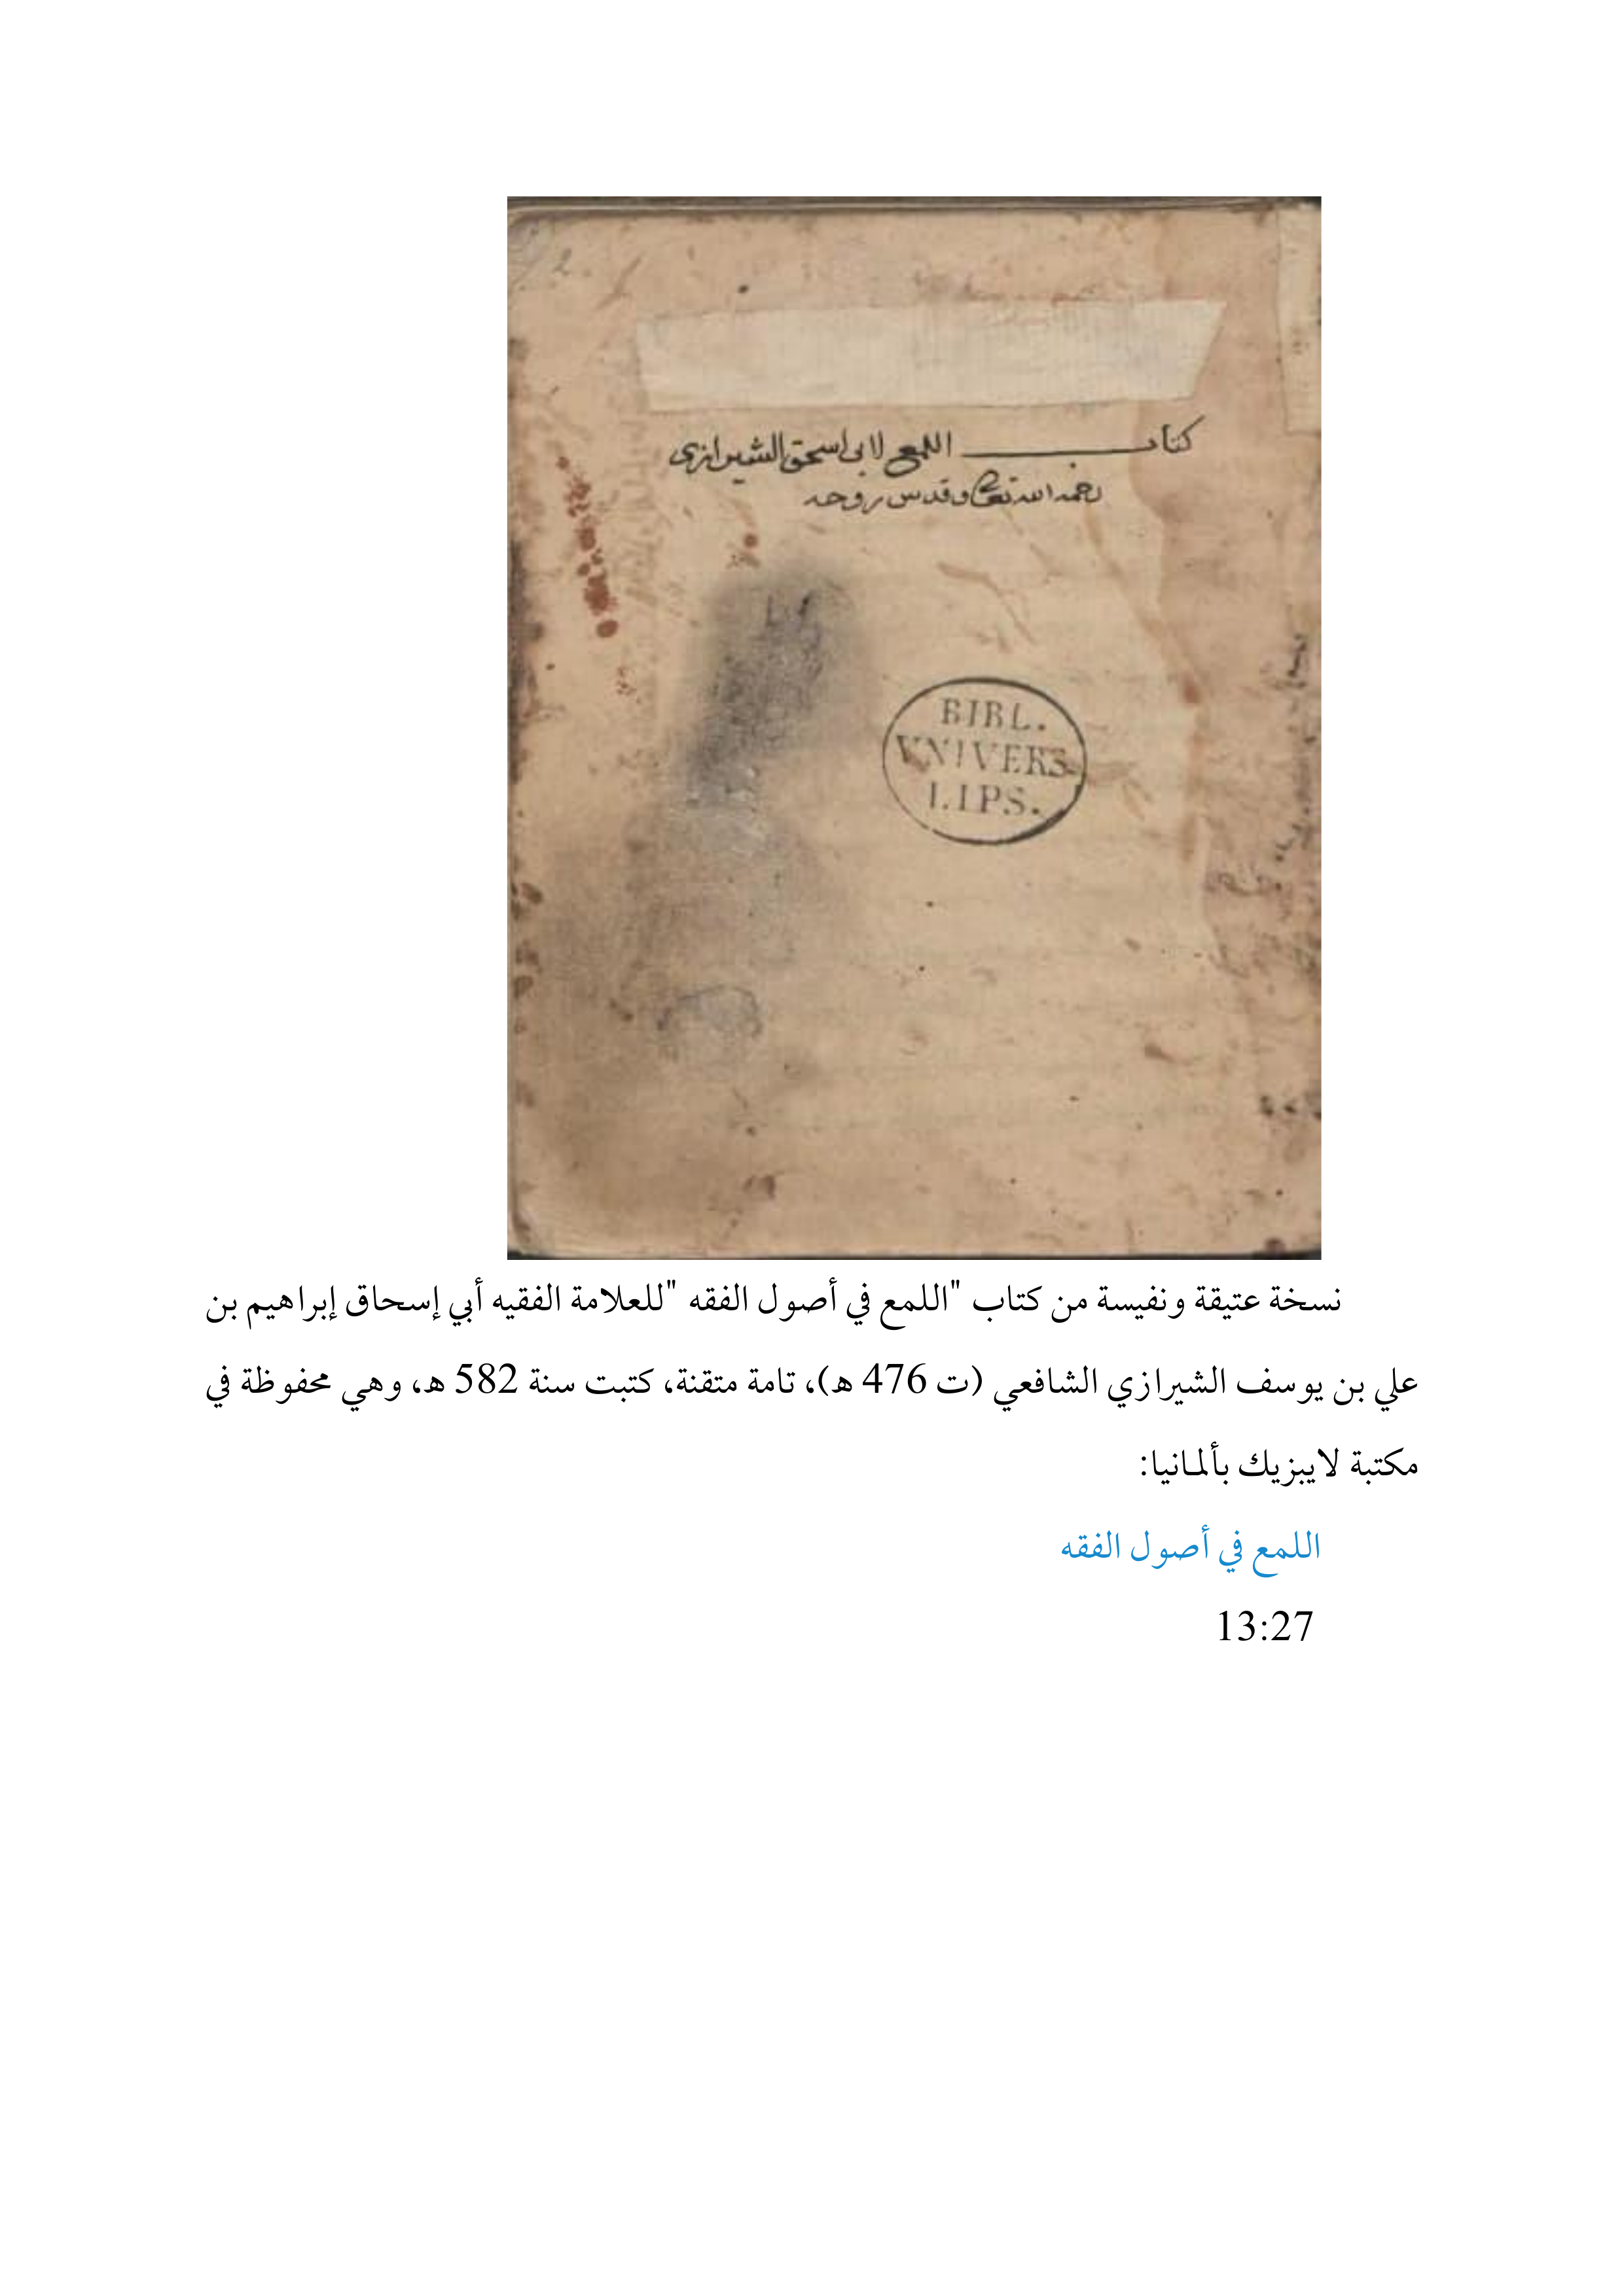 2.
كتاب اللمع لابي اسحق الشيرازي
رحمه الله تعالى وقدس روحه
BIBL.
VNIVERS
LIPS.
نسخة عتيقة ونفيسة من كتاب "اللمع في أصول الفقه "للعلامة الفقيه أبي إسحاق إبراهيم بن
علي بن يوسف الشيرازي الشافعي (ت 476 ه)، تامة متقنة، كتبت سنة 582 ه، وهي محفوظة في
مكتبة لايبزيك بألمانيا:
اللمع في أصول الفقه
13:27